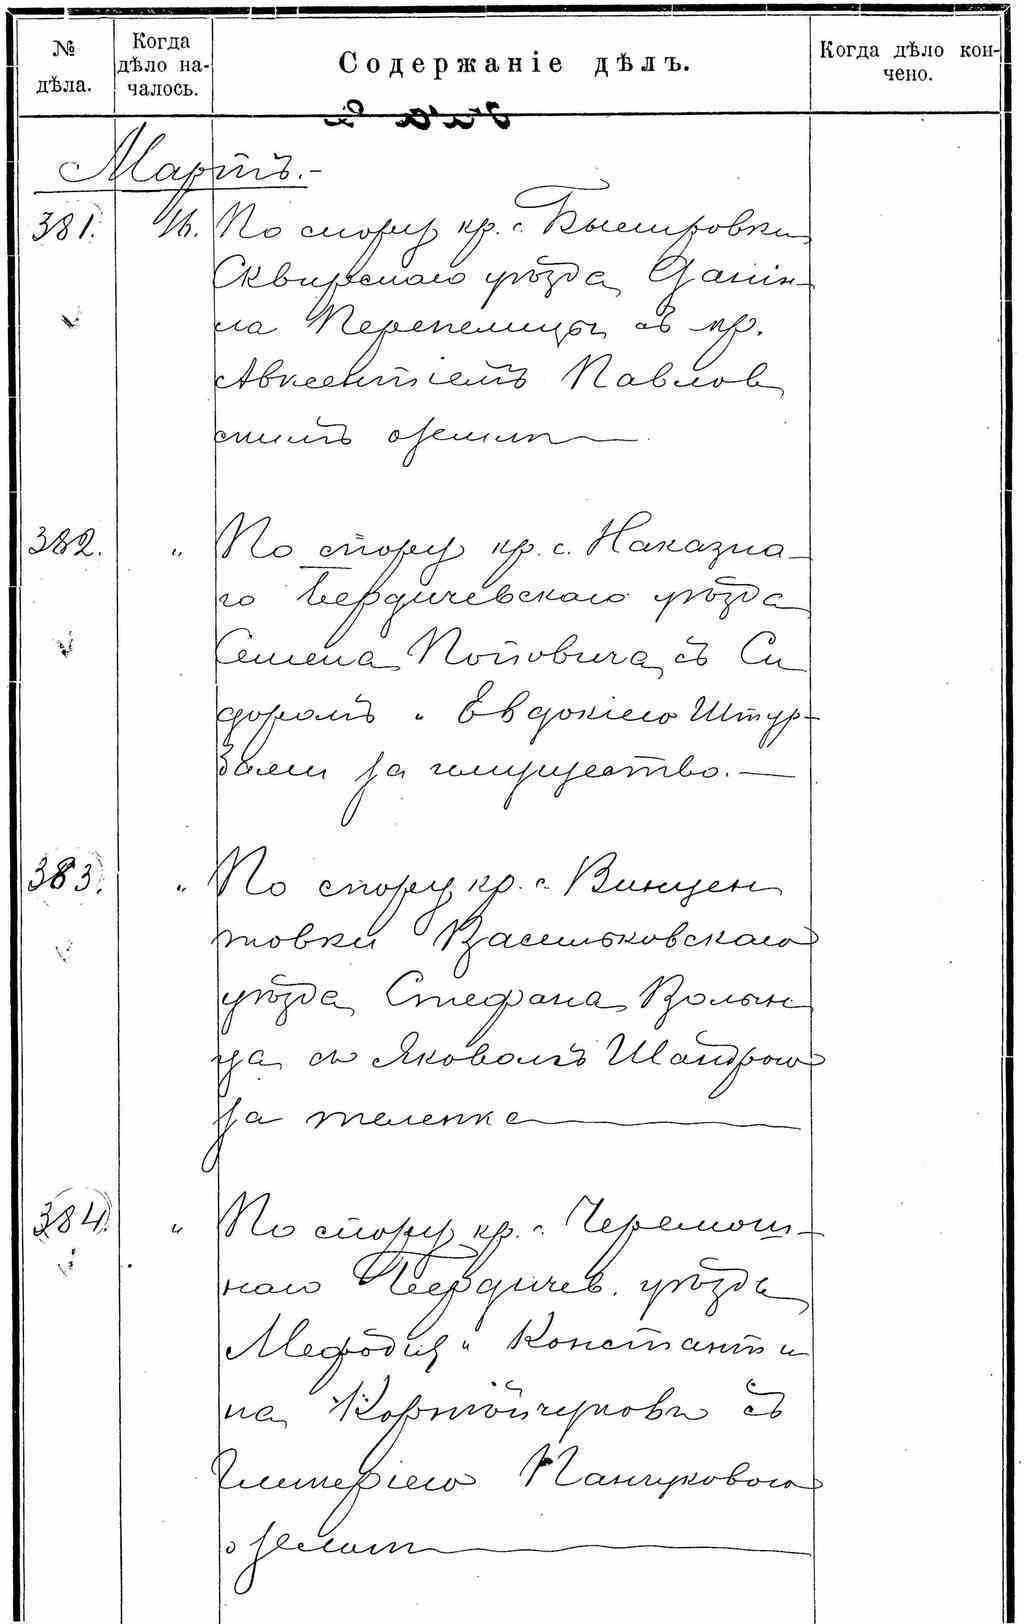 № дѣла.
Когда дѣло началось.
Содержаніе дѣлъ.
Когда дѣло кончено.
Мартъ.-
381. 16. По спору кр. с. Быстровки
Сквирскаго уѣзда Даніи-
ла Перепелицы съ кр.
Авксентіемъ Павлов
скимъ о землѣ
382. " По спору кр. с. Наказна-
го Бердичевскаго уѣзда
Семена Поповича съ Си
доромъ и Евдокіею Штур-
за имущество.
383. " По спору кр. с. Винцен
товки Васильковскаго
уѣзда Стефана Волын
ца съ Яковомъ Шайдрою
за теленка
384. " По спору кр. с. Черемош-
наго Бердичев. уѣзда
Мефодія и Константи
на съ
Гликеріею Панчуковою
о землѣ